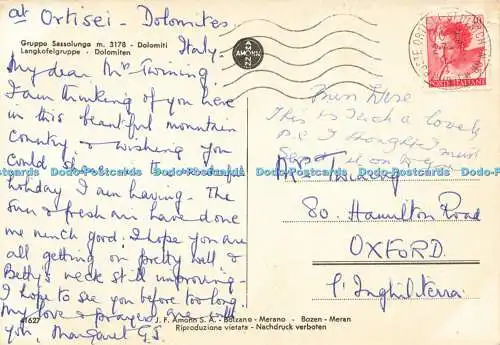 at Ortisei - Dolomites
Italy.
Gruppo Sassolungo m. 3178 - Dolomiti
Langkofelgruppe - Dolomiten
My dear Mrs Twining
I am thinking of you here
in this beautiful mountain
country & wishing you
could share the wonderful
holiday I am having. The
Sun & fresh air have done
me much good. I hope you are
all getting on pretty well &
Betty's neck still improving.
I hope to see you before too long
My love & prayers are with
you, Margaret G.S.
AMONN
POSTE ITALIANE
Miss Wise
This is such a lovely
P.C I thought I must
it on
Mrs Twining
80. Hamilton Road
OXFORD.
l'Inghilterra
41627
J. F. Amonn S. A. - Bolzano - Merano - Bozen - Meran
Riproduzione vietata - Nachdruck verboten
Dodo-Postcards Dodo-Postcards Dodo-Postcards Dodo-Postcards